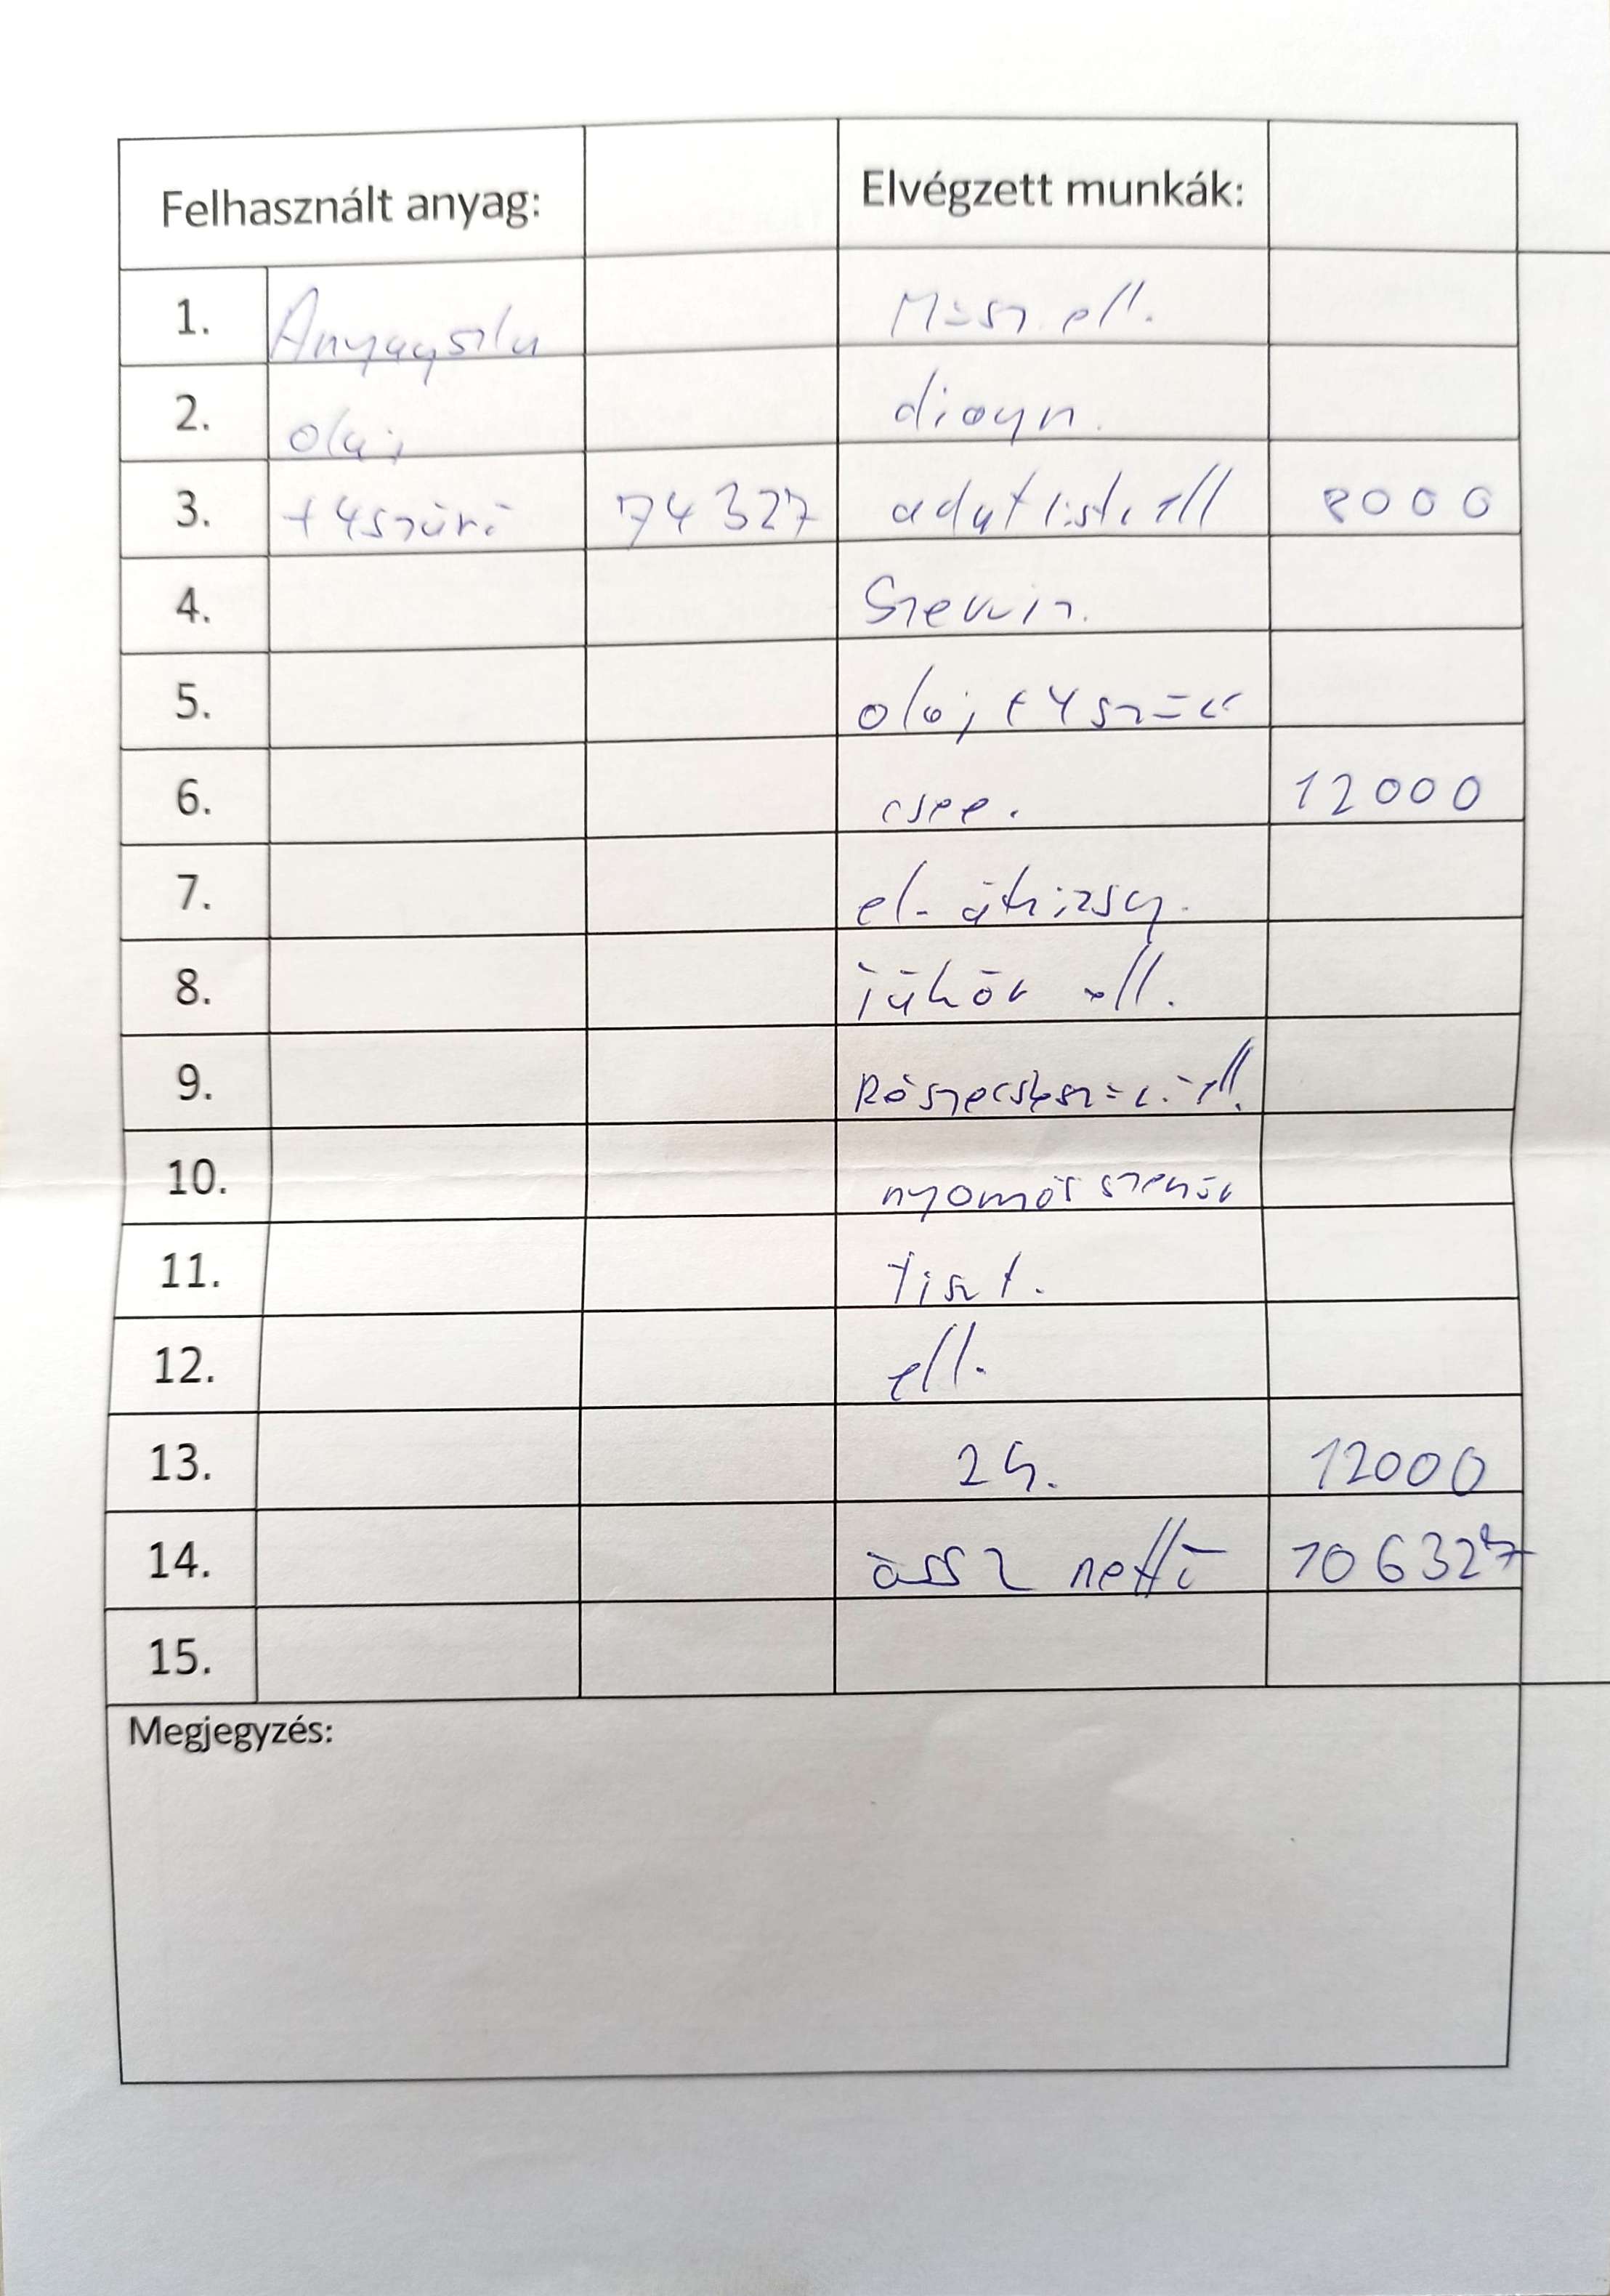 Felhasznált anyag: Elvégzett munkák:
1. Anyagszla Műsz. ell.
2. olaj diagn.
3. +4szűrő 74327 adatlista ell 8000
4. Szerviz.
5. olaj +4 szűrő
6. csere. 12000
7. el. átvizsg.
8. tükör ell.
9. Részecskeszűrő ell.
10. nyomás szenzor
11. tiszt.
12. ell.
13. 2h. 12000
14. össz nettó 106327
15.
Megjegyzés: